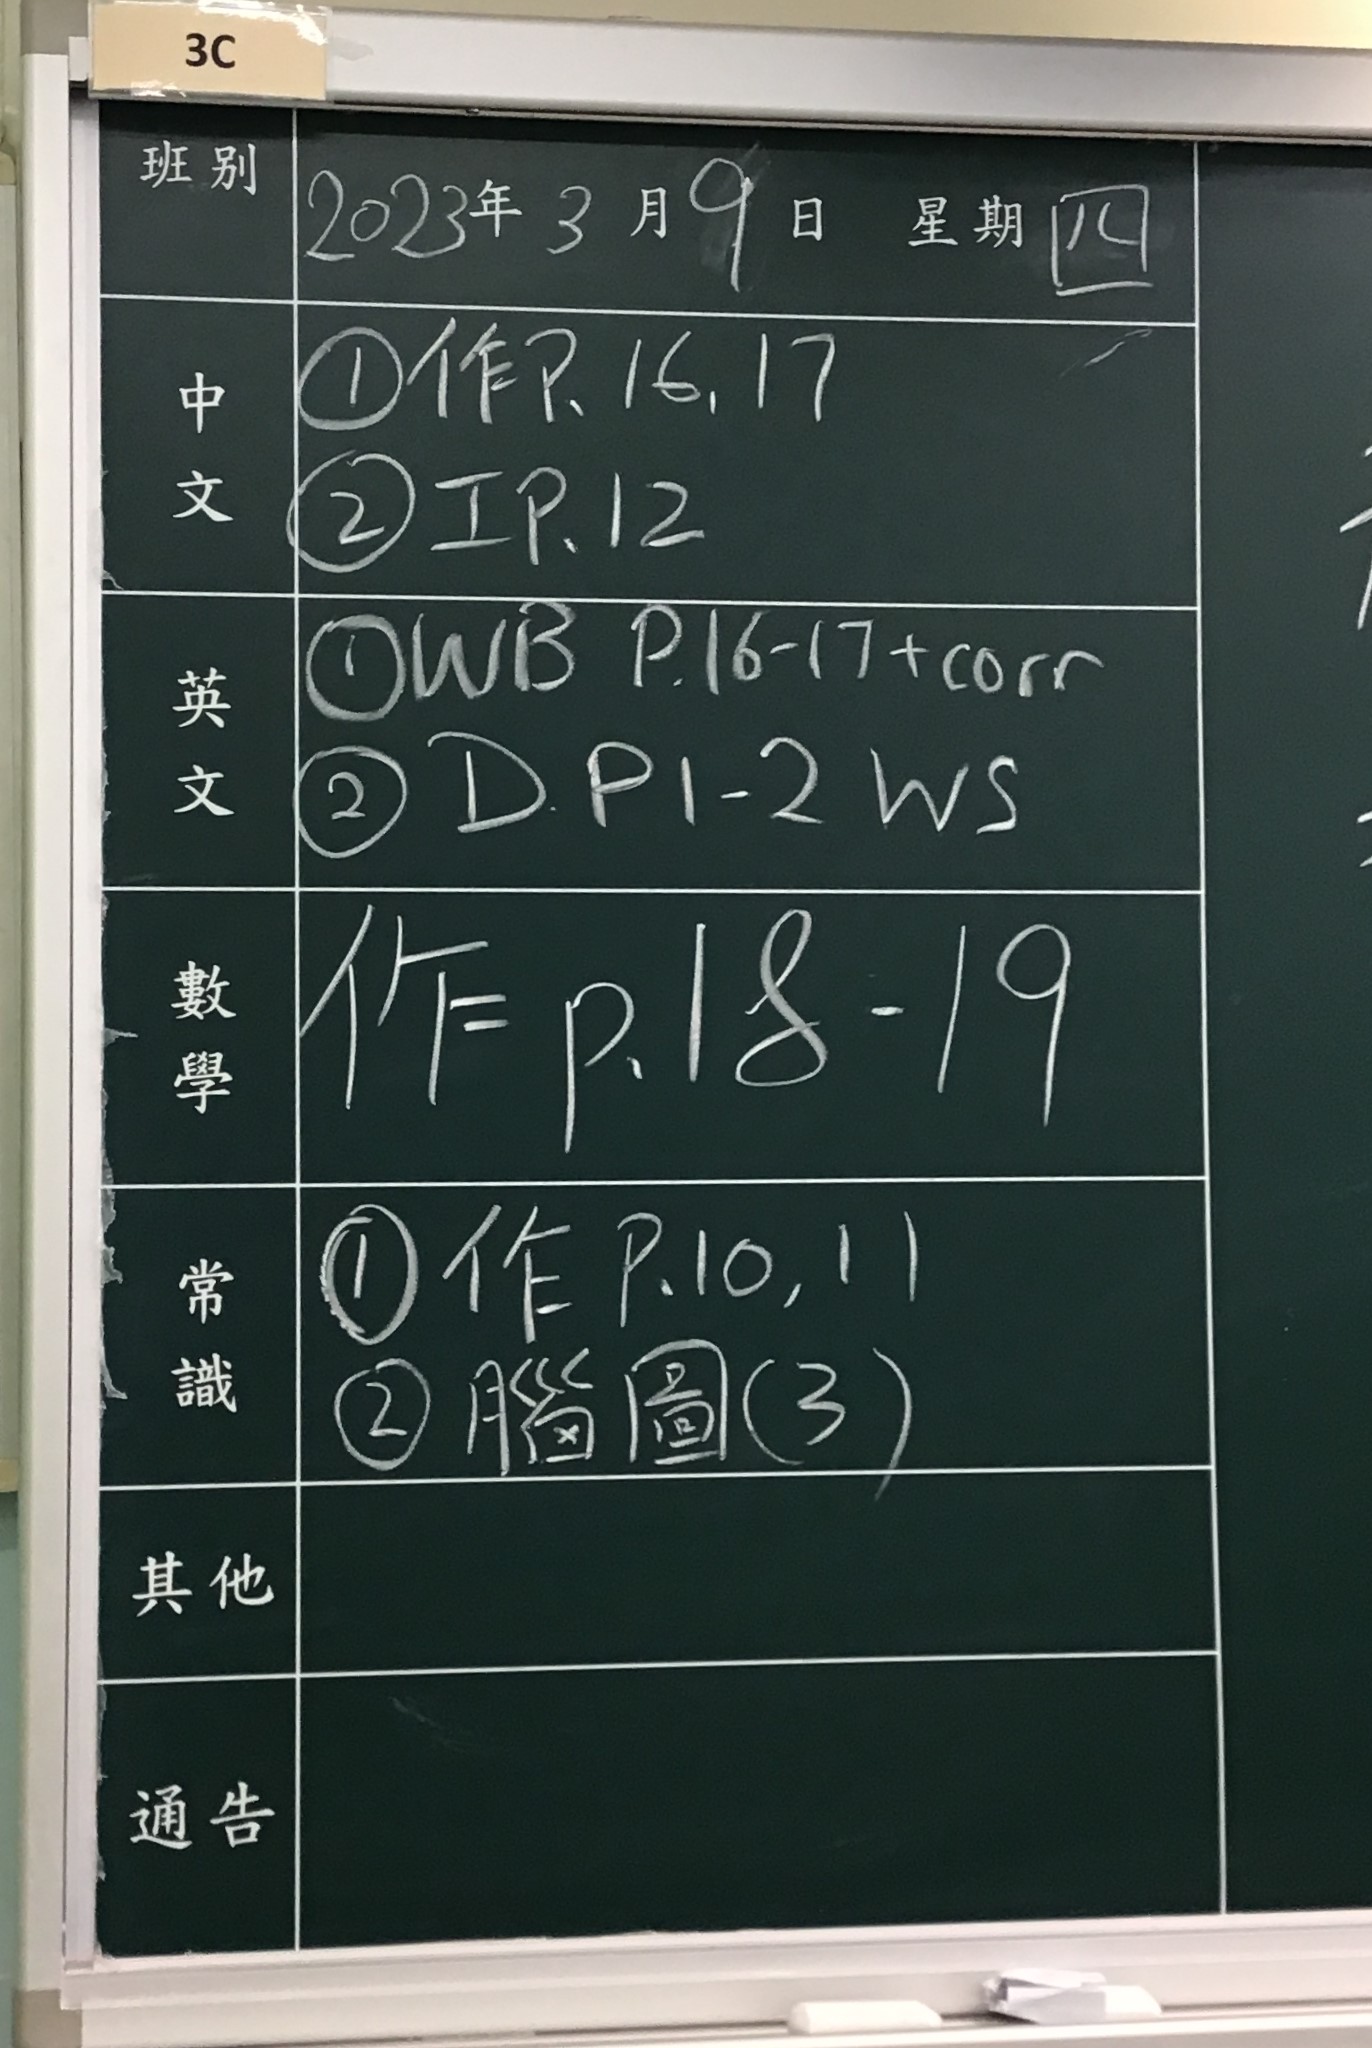 3C
班別
2023年3月9日 星期四
中文
①作P.16,17
②工P.12
英文
①WB P.16-17+corr
②D.P1-2 WS
數學
作p.18-19
常識
①作P.10,11
②腦圖(3)
其他
通告